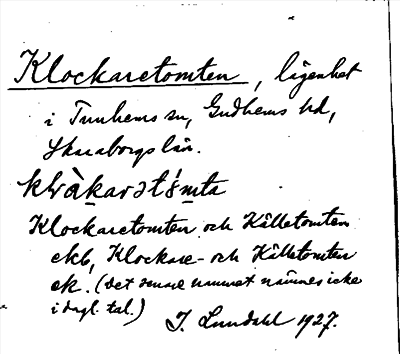 Klockaretomten, lägenhet
i Tunhems sn, Gudhems hd,
Skaraborgs län.
klɷ̀karətómta
Klockaretomten och Källetomten
ekb, Klockare- och Källetomten
ek. (Det senare namnet nämnes icke
i dagl. tal.)
J. Lundahl 1927.